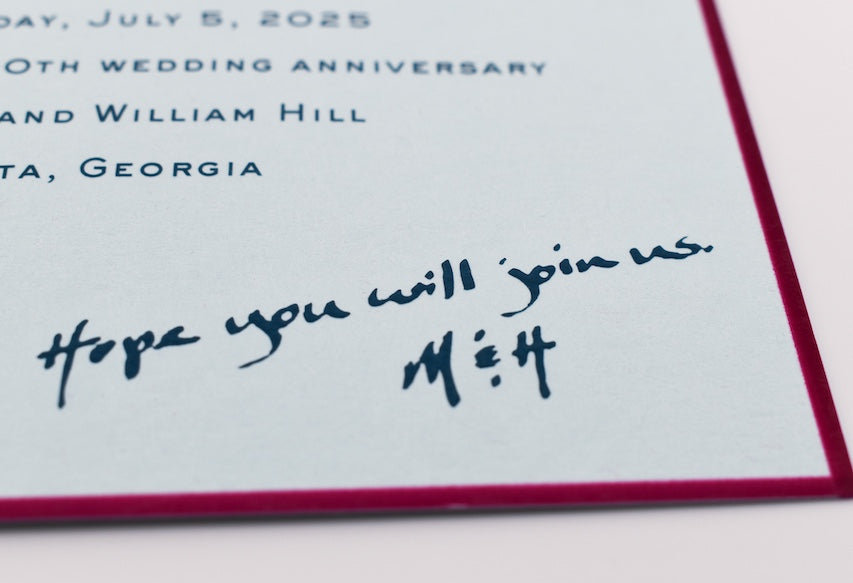 DAY, JULY 5, 2025
0TH WEDDING ANNIVERSARY
AND WILLIAM HILL
TA, GEORGIA
Hope you will join us.
M & H